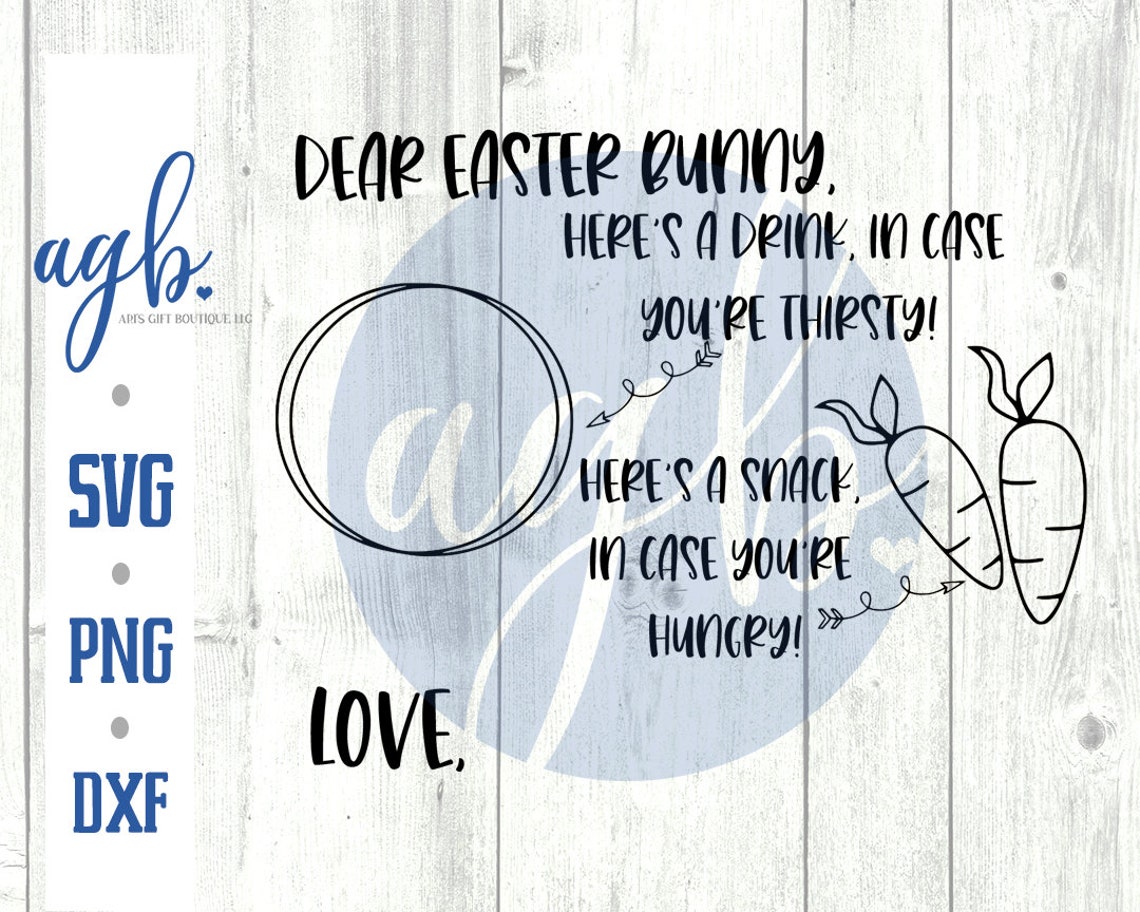 agb.
API'S GIFT BOUTIQUE, LLC
SVG
PNG
DXF
DEAR EASTER BUNNY,
HERE'S A DRINK, IN CASE
YOU'RE THIRSTY!
HERE'S A SNACK,
IN CASE YOU'RE
HUNGRY!
LOVE,
agb.